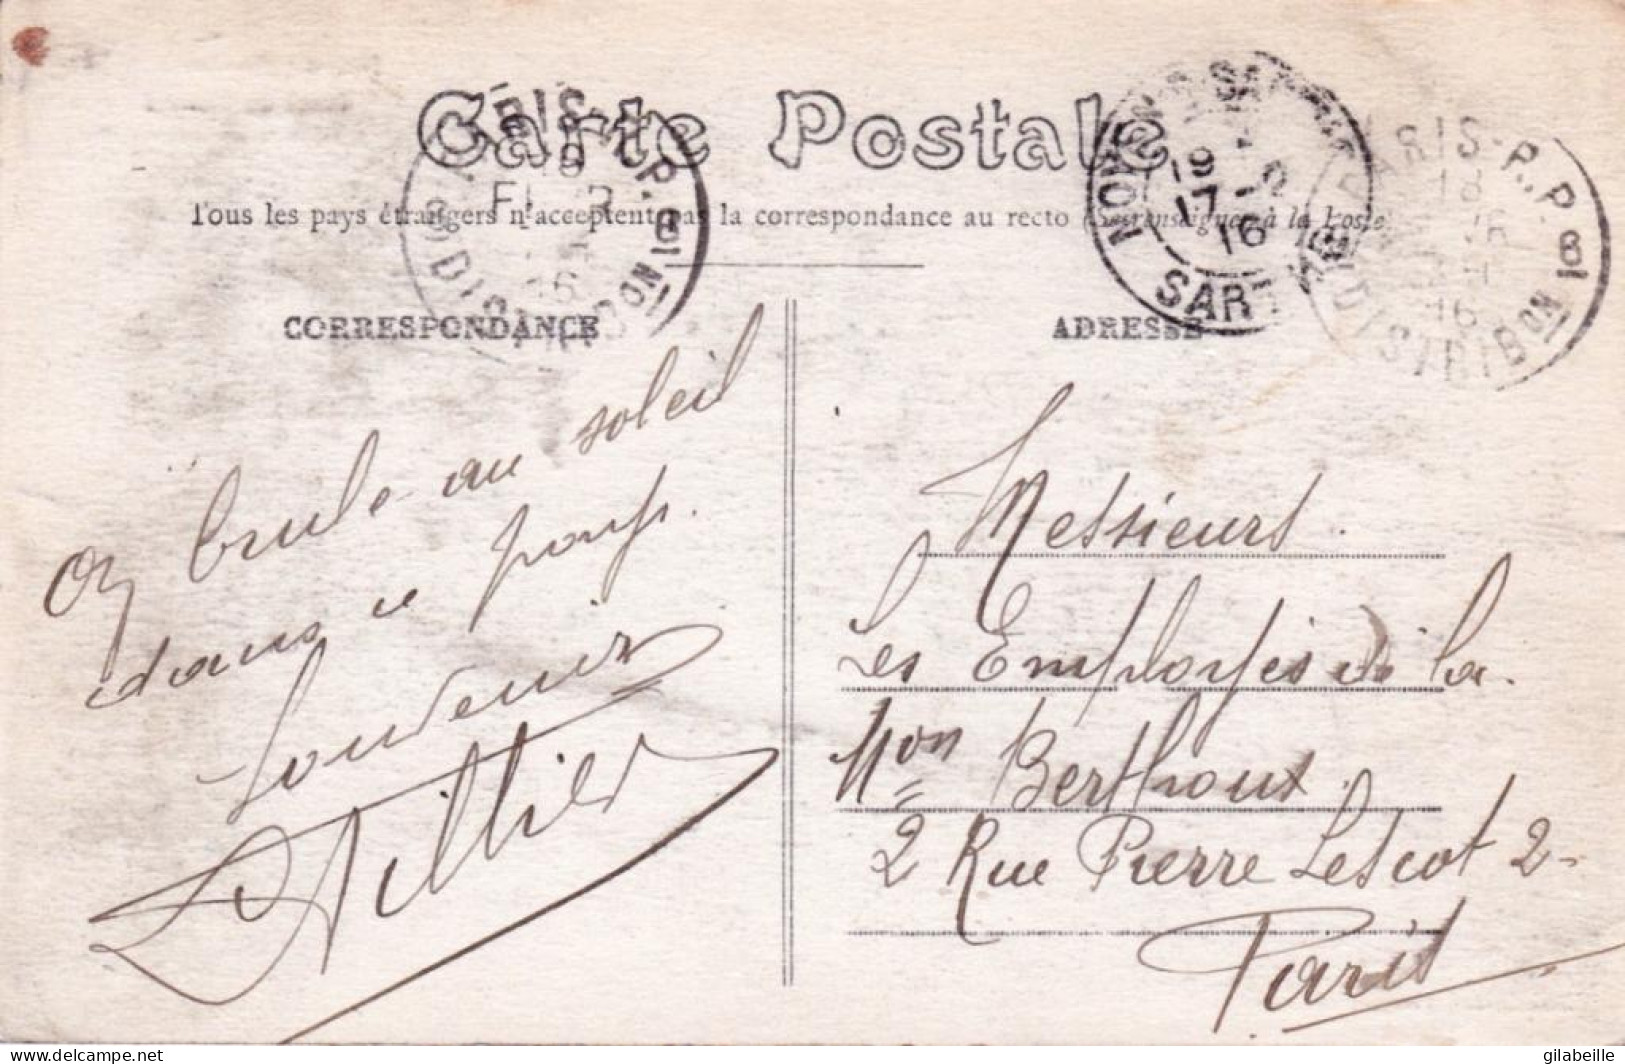 Carte Postale
Tous les pays étrangers n'acceptent pas la correspondance au recto (Se renseigner à la Poste)
CORRESPONDANCE
ADRESSE
on brule au soleil
dans ce pays.
Souvenir
Messieurs
Les Employés de la
Mon Berthoux
2 Rue Pierre Lescot 2
Paris
SARTHE
19
17 - 2
16
PARIS-P.P. 81
DISTRIBON
16
delcampe.net
gilabeille